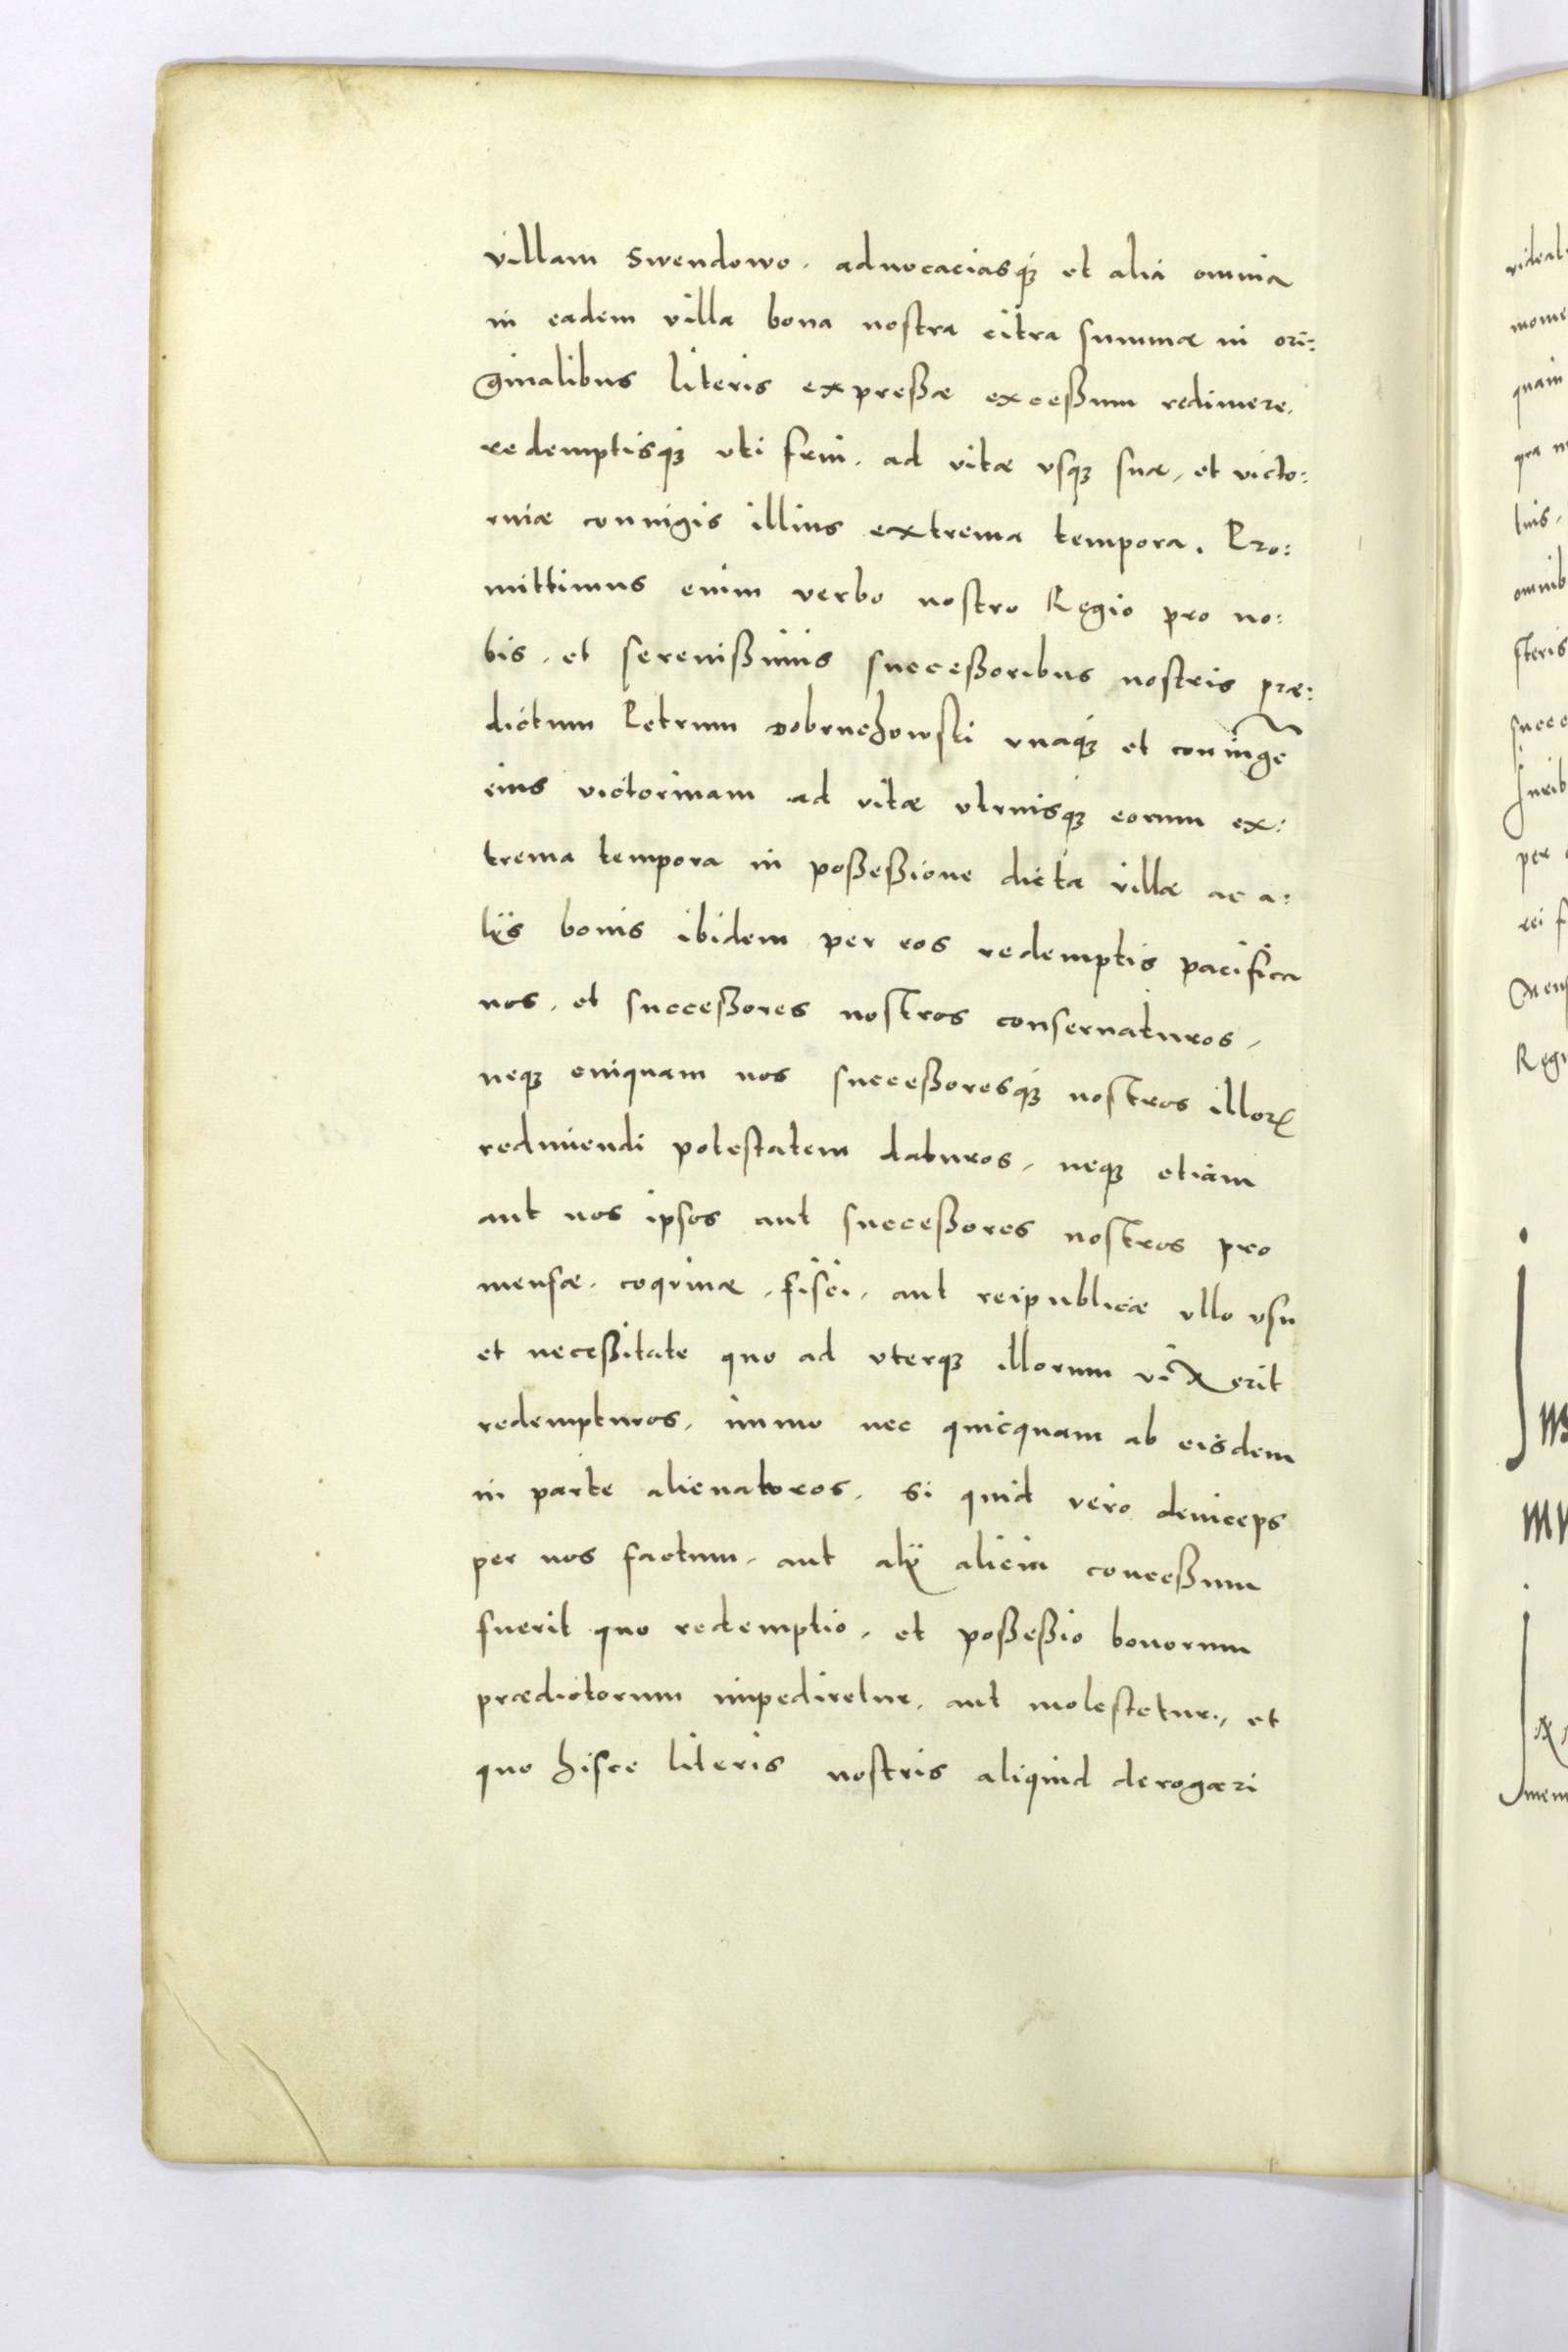 villam Swendowo. aduocaciasqꝫ et alia omnia
in eadem villa bona nostra citra summæ in ori:
ginalibus literis expreßæ exceßum redimere.
redemptisqꝫ vti frui. ad vitæ vsqꝫ suæ, et victo:
riniæ coniugis illius extrema tempora. Pro:
mittimus enim verbo nostro Regio pro no:
bis. et serenißimis succeßoribus nostris præ:
dictum Petrum Dobruchowski vnaqꝫ et coniugē
eius victorinam ad vitæ vtriusqꝫ eorum ex:
trema tempora in poßeßione dicta villæ ac a:
lijs bonis ibidem per eos redemptis pacifica
nos. et succeßores nostros conseruaturos,
neqꝫ cuiquam nos succeßoresqꝫ nostros illorꝝ
redimendi potestatem daturos, neqꝫ etiam
aut nos ipsos aut succeßores nostros pro
mensæ. coquinæ, fisci. aut reipublicæ vllo vsu
et neceßitate quo ad vterqꝫ illorum vixerit
redempturos. immo nec quicquam ab eisdem
in parte alienatoros. Si quid vero deinceps
per nos factum. aut alij alicui conceßum
fuerit quo redemptio. et poßeßio bonorum
prædictorum impediretur. aut molestetur, et
quo hisce literis nostris aliquid derogari
videat
mome
quam
qra
tuis,
omnib
steris
succe
Iurib
per
rei
Mens
Regn